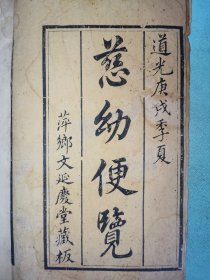 道光庚戌季夏
慈幼便覽
萍鄉文延慶堂藏板